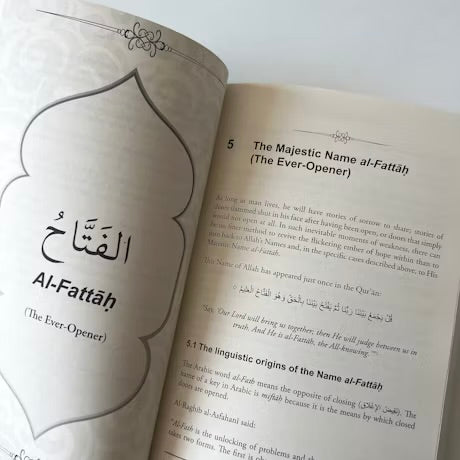 الفَتَّاحُ
Al-Fattāḥ
(The Ever-Opener)
5 The Majestic Name al-Fattāḥ
(The Ever-Opener)
As long as man lives, he will have stories of sorrow to share; stories of
doors slammed shut in his face after having been open, or doors that simply
would not open at all. In such inevitable moments of weakness, there can
be no finer method to revive the flickering ember of hope within than to
turn back to Allah's Names and, in the specific cases described above, to His
Majestic Name al-Fattāḥ.
This Name of Allah has appeared just once in the Qur'an:
قُلْ يَجْمَعُ بَيْنَنَا رَبُّنَا ثُمَّ يَفْتَحُ بَيْنَنَا بِالْحَقِّ وَهُوَ الْفَتَّاحُ الْعَلِيمُ
"Say, 'Our Lord will bring us together; then He will judge between us in
truth. And He is al-Fattāḥ, the All-knowing.'"
5.1 The linguistic origins of the Name al-Fattāḥ
The Arabic word al-Fath means the opposite of closing (نقيض الإغلاق). The
name of a key in Arabic is miftāḥ because it is the means by which closed
doors are opened.
Al-Raghib al-Asfahani said:
"Al-Fath is the unlocking of problems and
takes two forms. The first is